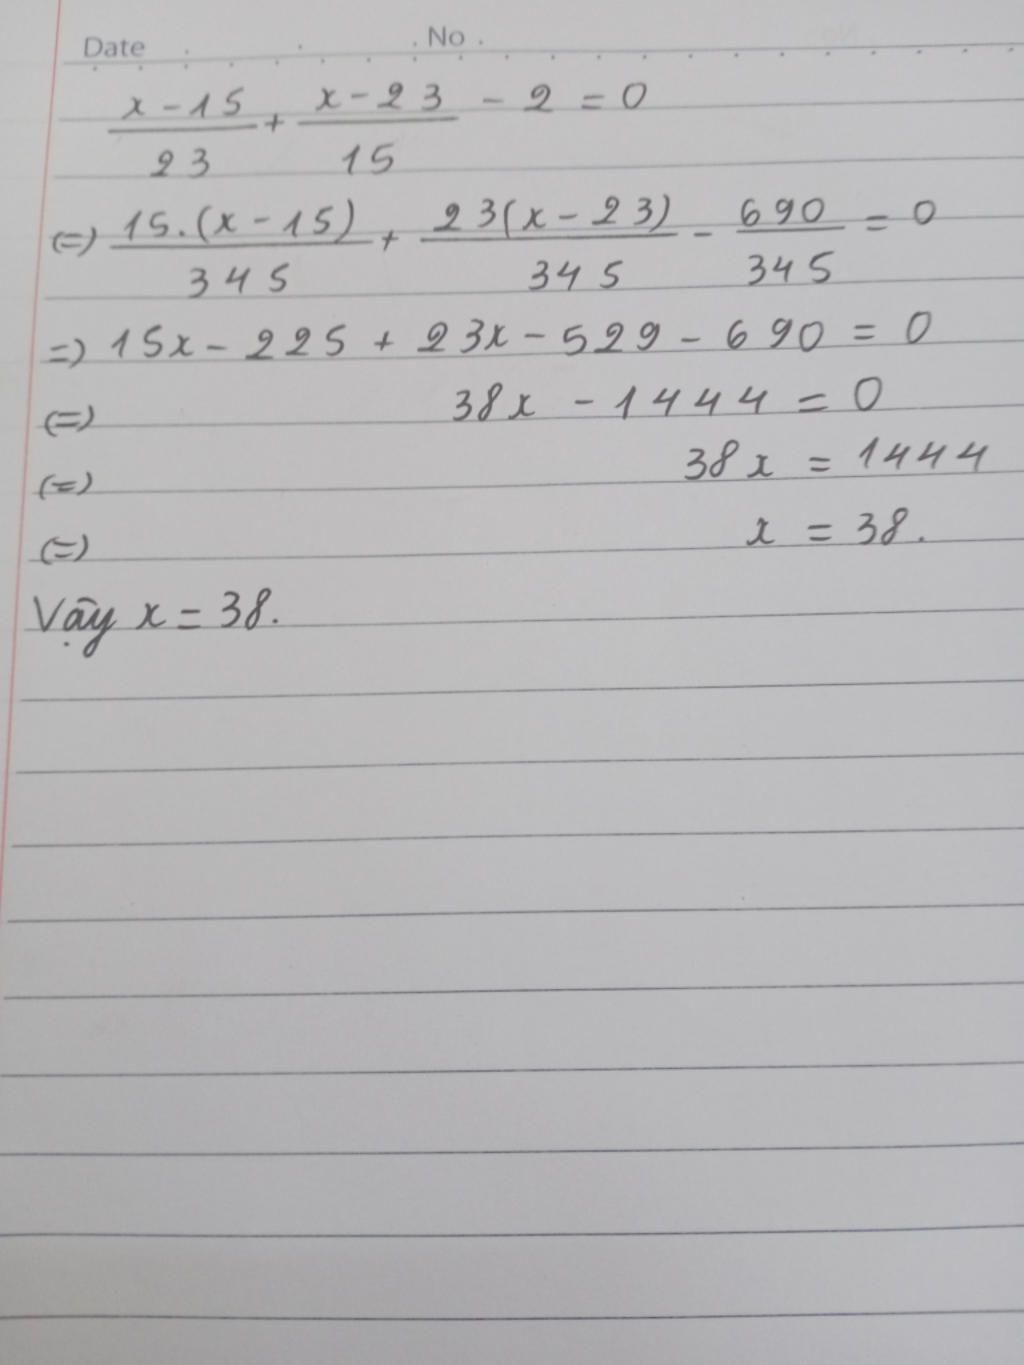 Date . . . No .
x - 15 / 23 + x - 23 / 15 - 2 = 0
(=) 15.(x - 15) / 345 + 23(x - 23) / 345 - 690 / 345 = 0
=) 15x - 225 + 23x - 529 - 690 = 0
(=) 38x - 1444 = 0
(=) 38x = 1444
(=) x = 38.
Vậy x = 38.